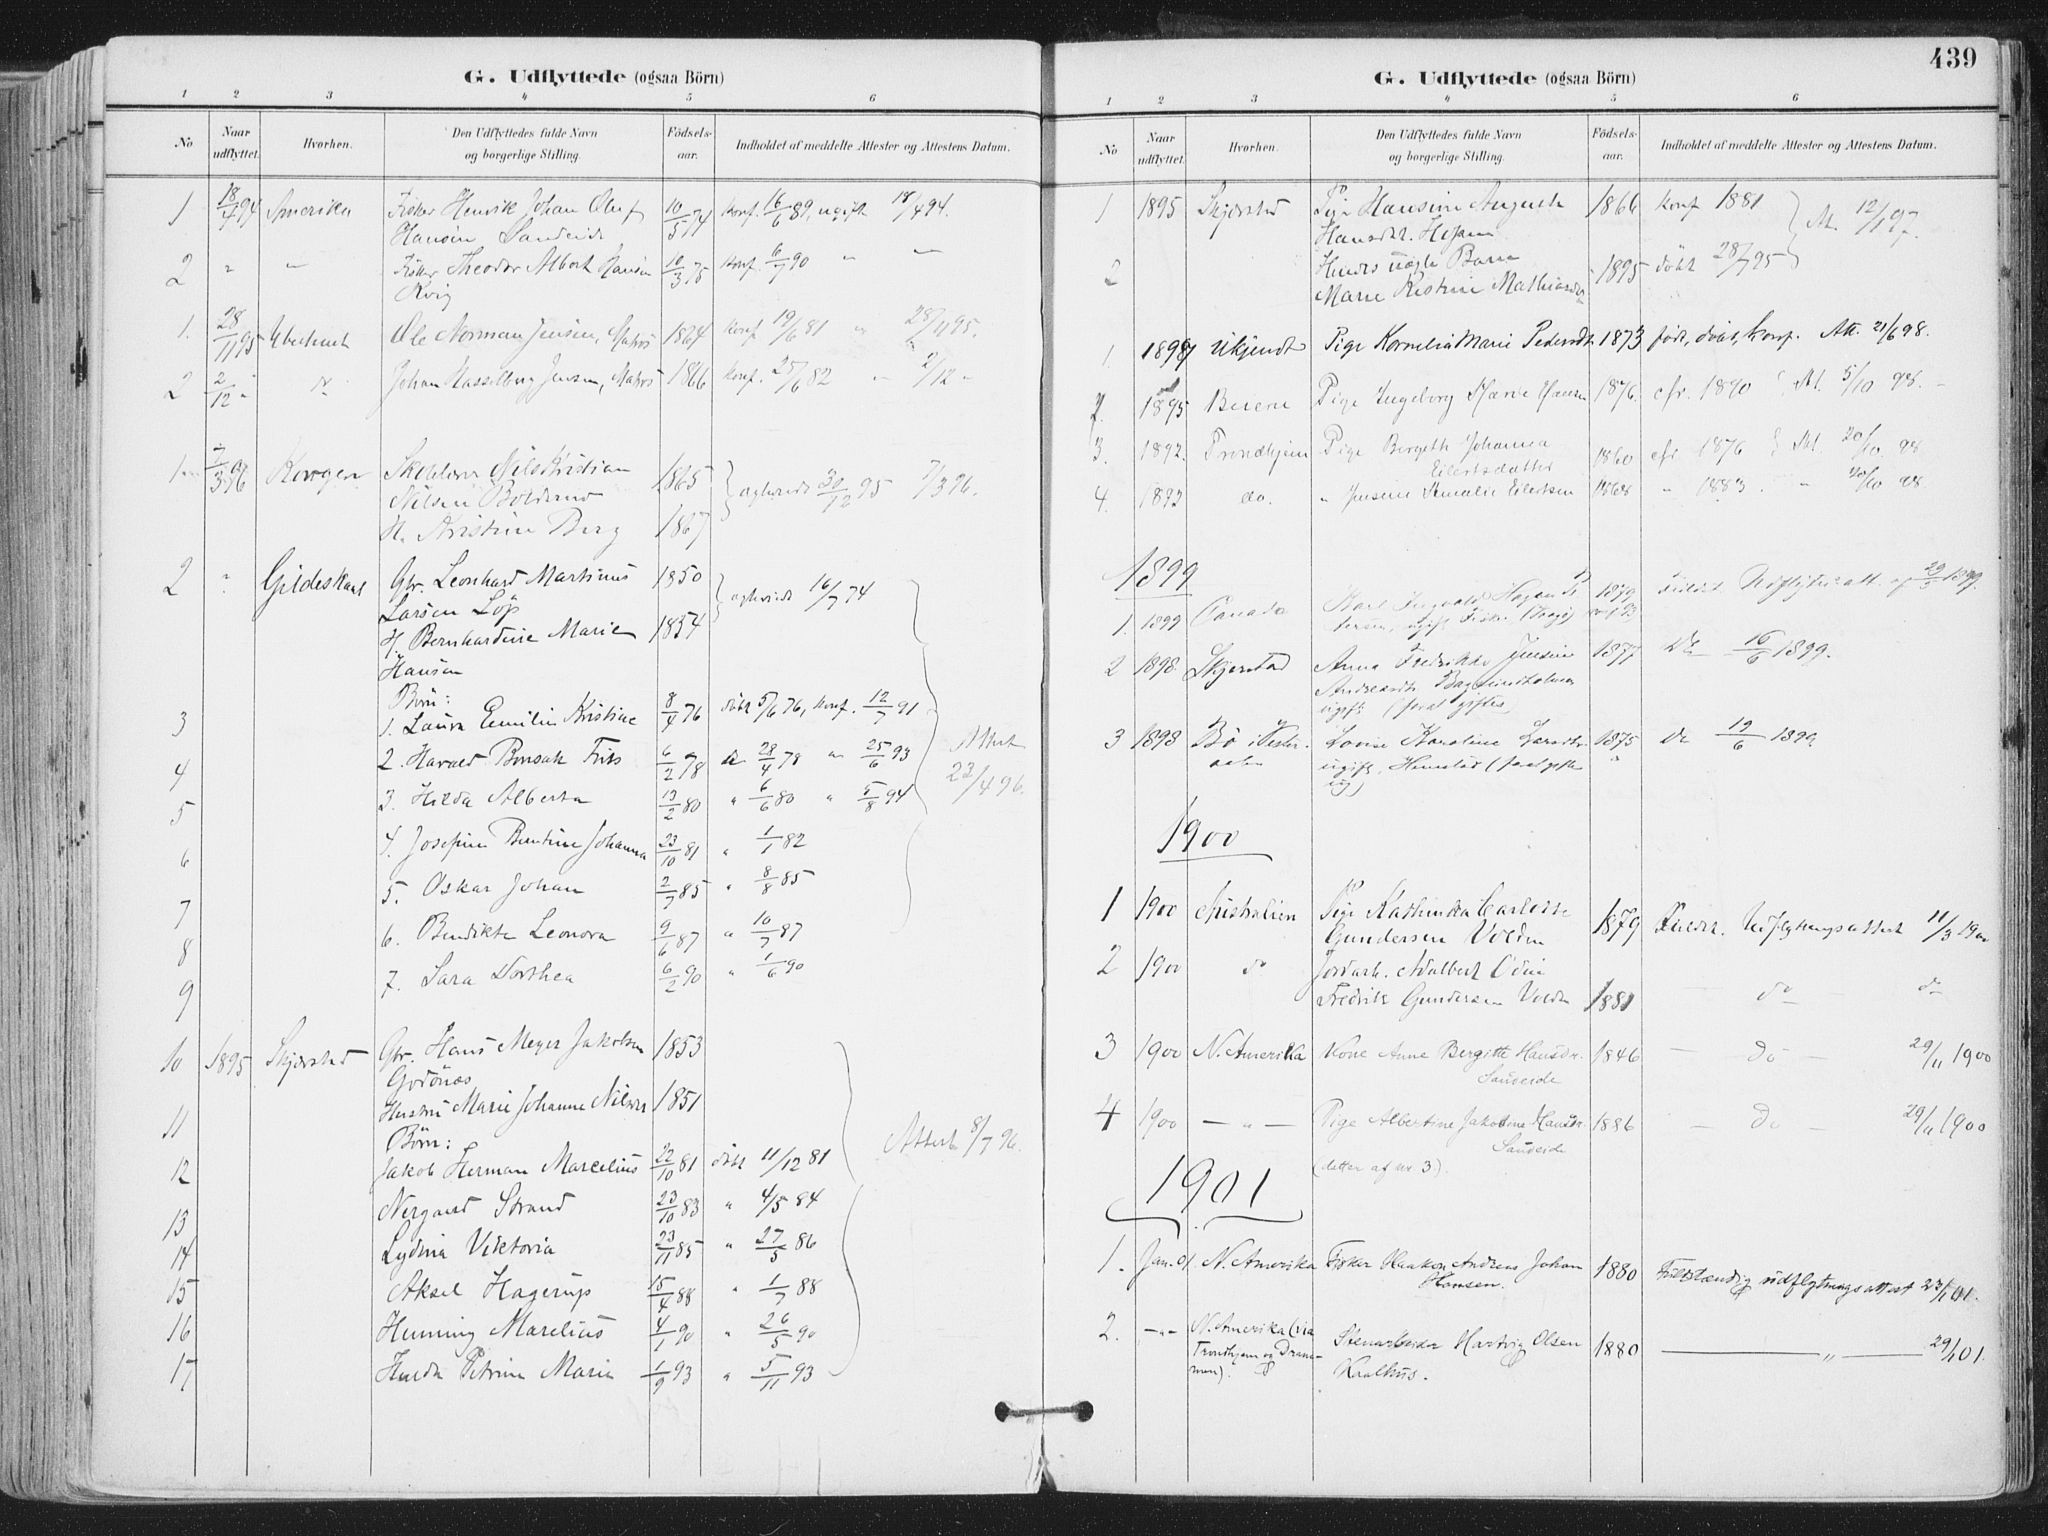 G. Udflyttede (ogsaa Börn)
1 2 3 4 5 6
No Naar udflyttet. Hvorhen. Den Udflyttedes fulde Navn og borgerlige Stilling. Födsels-aar. Indholdet af meddelte Attester og Attestens Datum.
1 18/4 94 Amerika Fisker Henrik Johan Oluf 10/5 74 konf. 16/6 89, ugift 18/4 94.
Hansen Sandeide
2 " " Fisker Theodor Albert Hansen 10/3 75 konf. 6/7 90 " "
Kvig
1. 28/11 95 Ubekendt Ole Norman Jensen, Matros 1864 konf 19/6 81 " 28/11 95.
2 2/12 " " Johan Hasselberg Jensen, Matros 1866 konf. 25/6 82 " 2/12 "
1 7/3 96 Korgen Nils Kristian 1865 30/12 95 7/3 96.
Nilsen
H. Kristine Berg 1867
2 " Gildeskaal Gbr. Leonhard Martinus 1850 16/7 74
Larsen Löp
H. Bernhardine Marie 1854
Hansen
Börn:
3 1. Laura Emilie Kristine 8/4 76 döbt 5/6 76, konf. 12/7 91
4 2. Harald Bonsak Friis 6/2 78 do 28/4 78 " 25/6 93 Attest
5 3. Hilda Alberta 13/2 80 " 6/6 80 " 5/8 94 23/4 96.
6 4. Josefine Bentine Johanna 23/10 81 " 1/1 82
7 5. Oskar Johan 2/7 85 " 8/8 85
8 6. Bendikte Leonora 9/6 87 " 10/7 87
9 7. Sara Dorthea 6/2 90 " 1/6 90
10 1895 Skjerstad Gbr. Hans Meyer Jakobsen 1853
Godönæs
11 Hustru Marie Johanne Nilsen 1851
Börn: Attest 8/7 96.
12 Jakob Herman Marcelius 22/10 81 döbt 11/12 81
13 Nergaard Strand 23/10 83 " 4/5 84
14 Lydia Viktoria 23/11 85 " 27/5 86
15 Aksel Hagerup 15/4 88 " 1/7 88
16 Henning Marelius 4/1 90 " 26/5 90
17 Hulda Petrine Marie 1/9 93 " 5/11 93
439
G. Udflyttede (ogsaa Börn)
1 2 3 4 5 6
No Naar udflyttet. Hvorhen. Den Udflyttedes fulde Navn og borgerlige Stilling. Födsels-aar. Indholdet af meddelte Attester og Attestens Datum.
1 1895 Skjerstad Pige Hansine Augusta 1866 konf 1881 Att. 12/1 97
Hansdtr.
2 Hendes uægte Barn 1895 döbt 28/7 95
Marie Kristine Mathiasdtr
1. 1898 Ukjendt Pige Kornelia Marie Pedersdtr 1873 födt, döbt, konf. Att. 21/6 98.
2. 1895 Beiern Pige Ingeborg Marie Hansen 1876. cfr. 1890 Att. 5/10 98.
3. 1892. Trondhjem Pige Bergeth Johanna 1860 cfr 1876 Att. 20/10 98
Eilertsdatter
4. 1892 do. " Jensine Amalie Eilertsen 1868 " 1883. " 20/10 98.
1899
1. 1899 Canada Karl Ingvald Hagen Pe 1879 Udflytn.att. 29/5 1899.
tersen, ugift Fisker
2 1898 Skjerstad Anna Fredrikke Jensine 1877 Do 16/6 1899.
Andreasdtr.
ugift
3 1898 Bö i Vester- Lovise Karoline Larsdtr. 1875 do 19/6 1899
aalen ugift,
1900
1 1900 Australien Pige Kathinka Carlotte 1879 Fuldst. Udflytningsattest 11/3 1900
Gundersen Volden
2 1900 do Jordarb. Adalbert Odin
Fredrik Gundersen Volden 1881 do do
3 1900 N. Amerika Kone Anne Bergitte Hansdtr. 1846 — do — 29/11 1900
Sandeide
4 1900 — " — Pige Albertine Jakobine Hansdr. 1886 — do — 29/11 1900
Sandeide
(datter af nr 3.)
1901
1. Jan. 01 N. Amerika Fisker Haakon Andreas Johan 1880 Fuldstændig udflytningsattest 23/1 01.
Hansen.
2. —"— N. Amerika (via Stenarbeider Hartvig Olsen 1880 — " — 29/1 01.
Trondhjem og Dram- Kvalhus.
men).